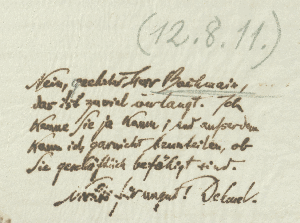 (12.8.11.)
Nein, geehrter Herr Bachmair,
das ist zuviel verlangt. Ich
kenne Sie ja kaum; und außerdem
kann ich garnicht beurteilen, ob
Sie geschäftlich befähigt sind.
Nichts für ungut! Dehmel.